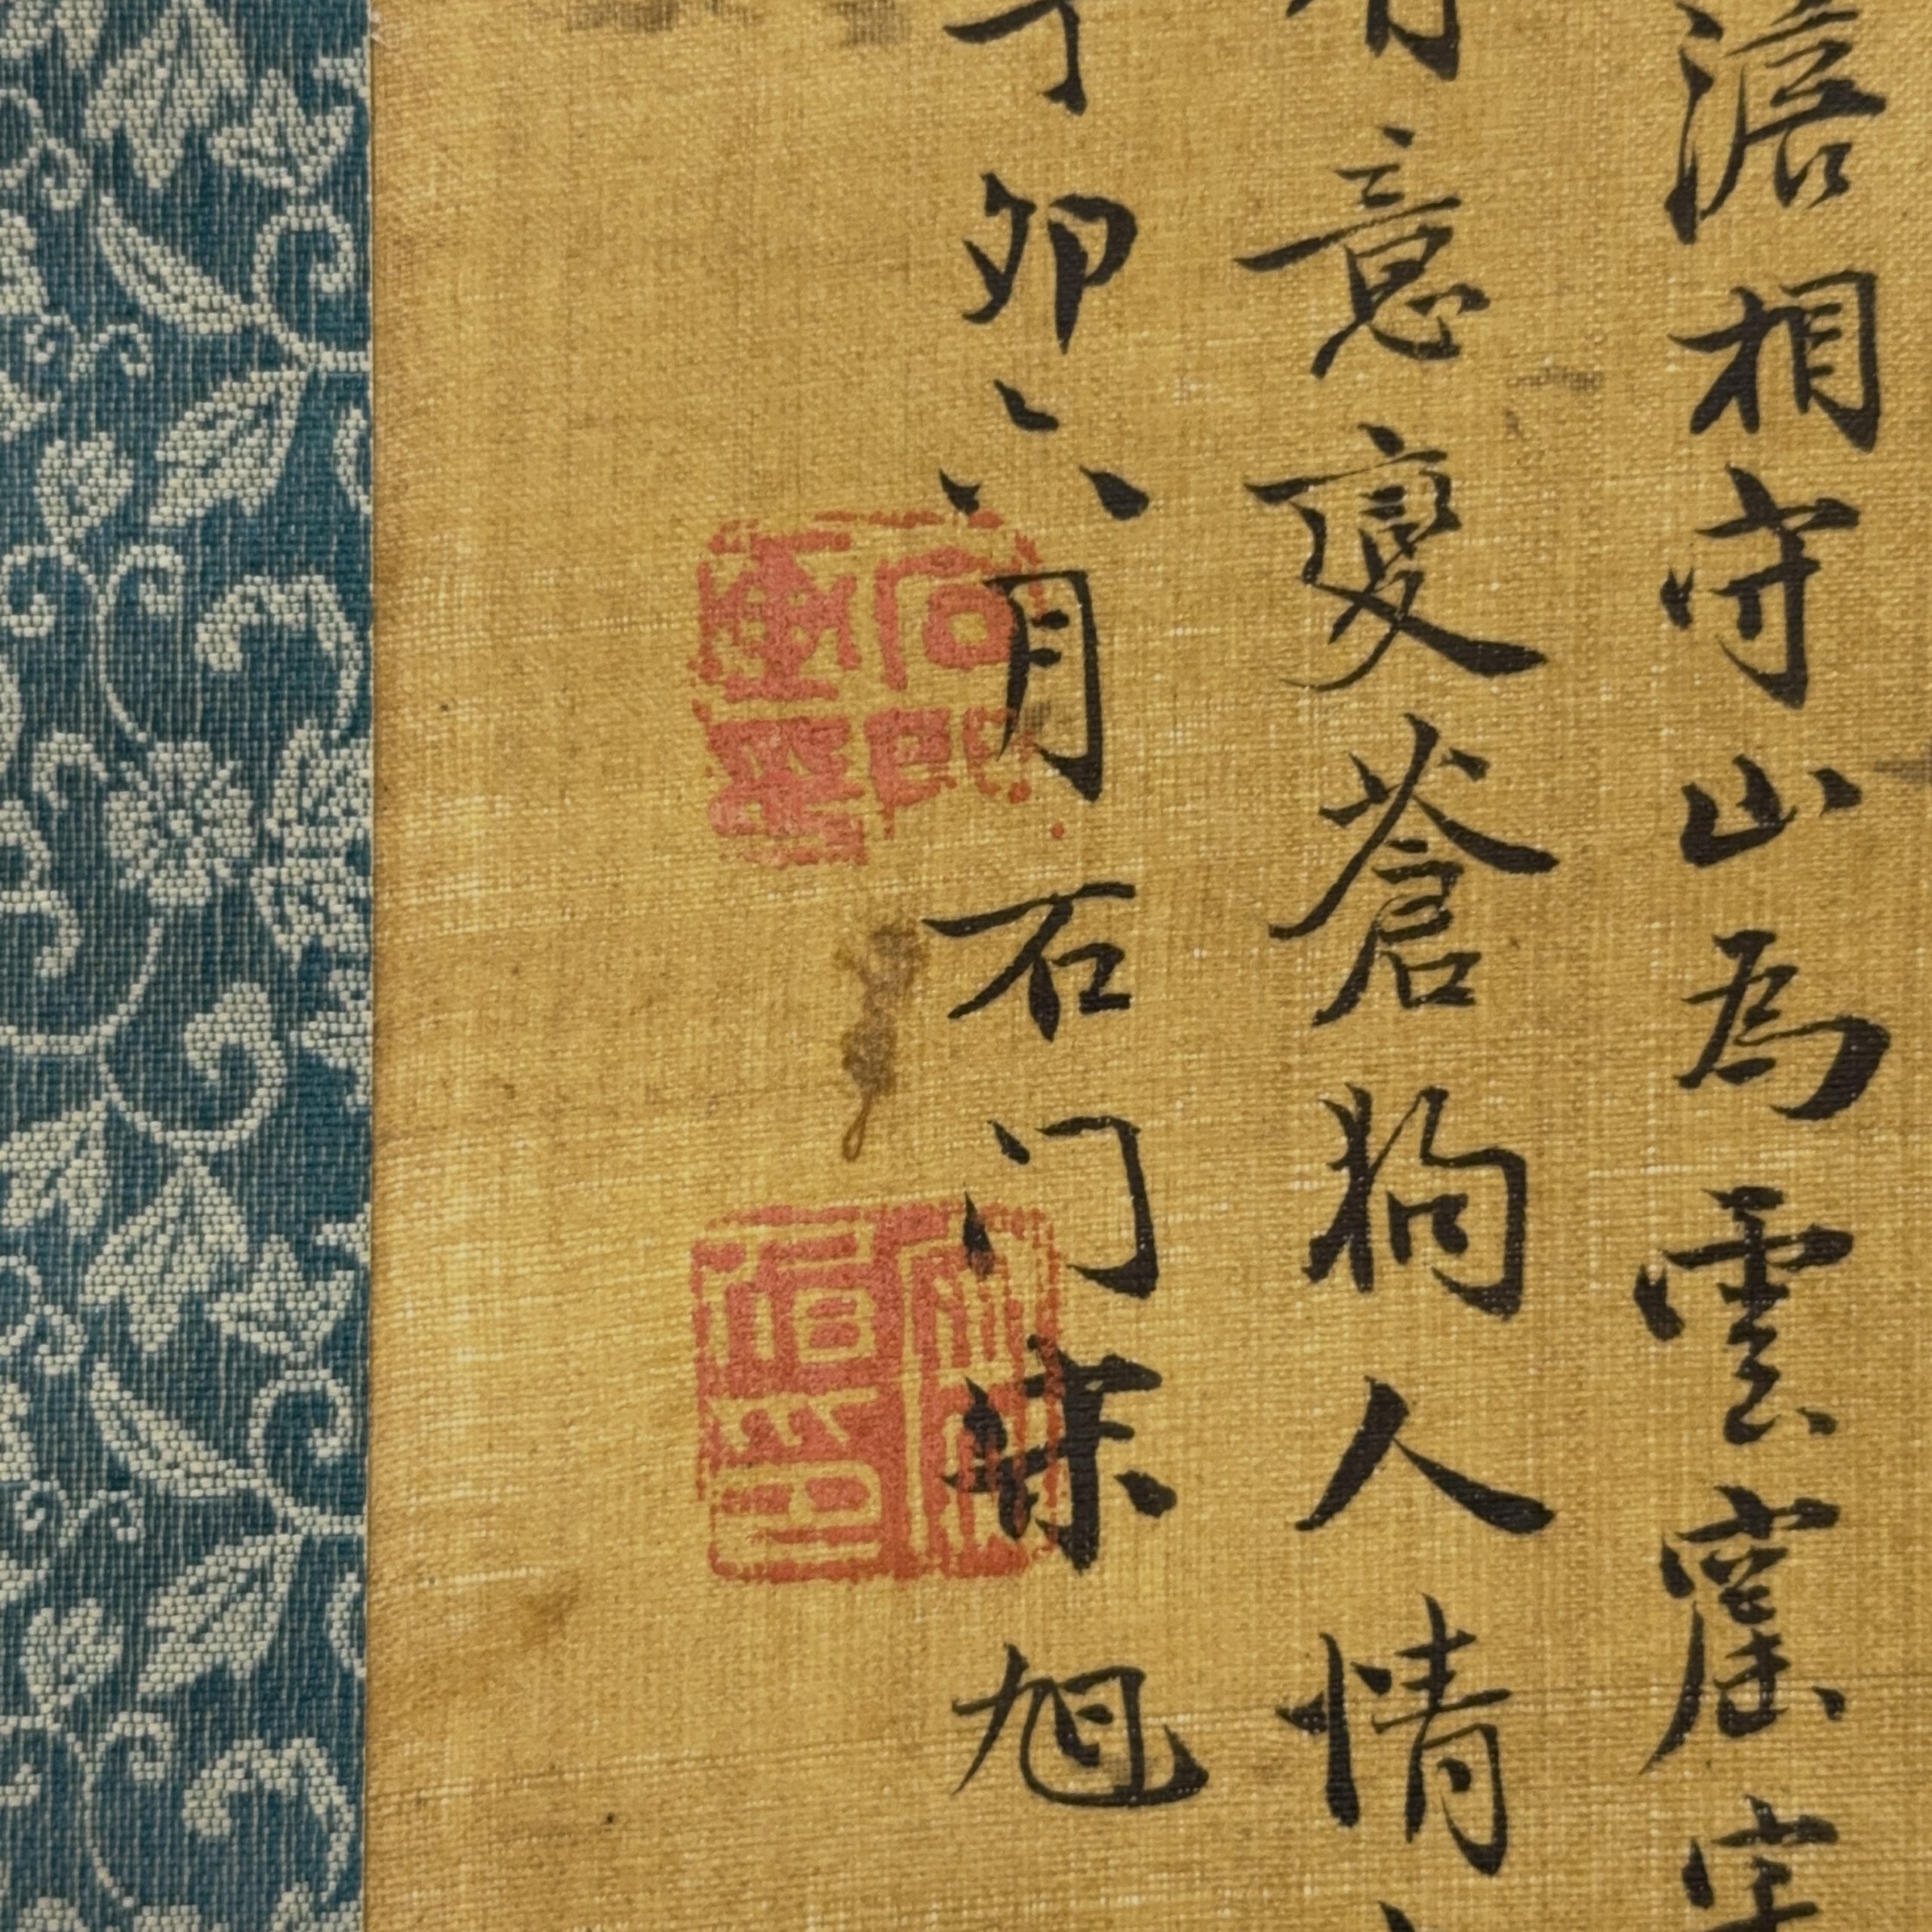 澹相守山為雲窟宅
有意變蒼狗人情
丁卯六月石门旭